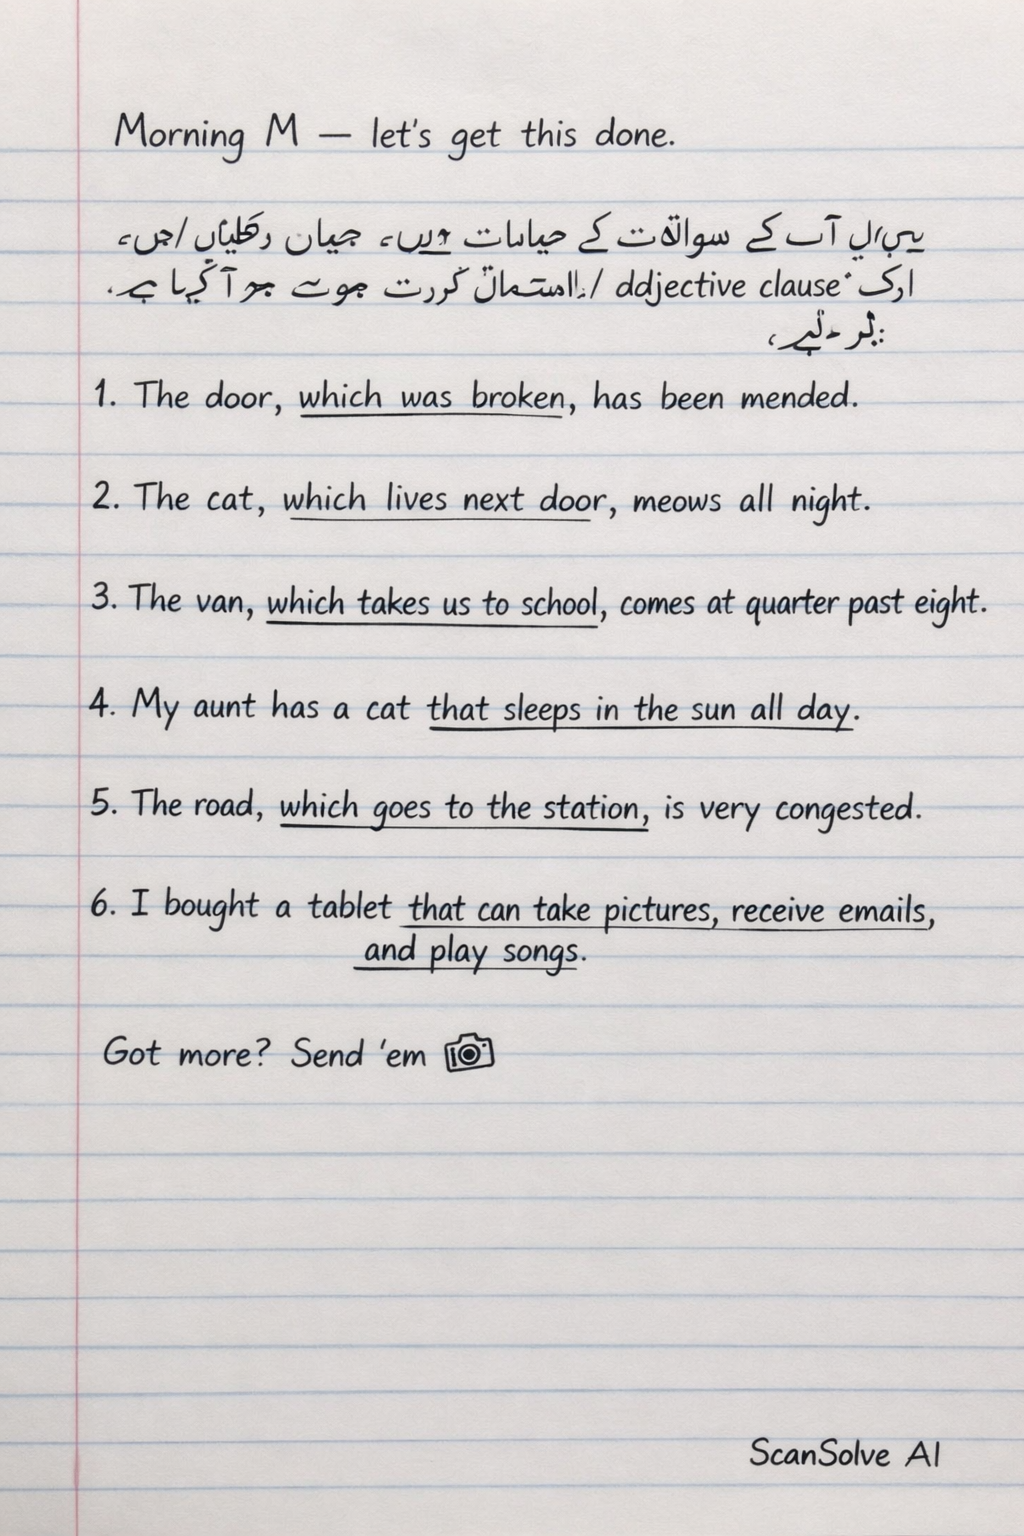 Morning M — let's get this done.
آپ کے سوالات کے
ddjective clause
1. The door, which was broken, has been mended.
2. The cat, which lives next door, meows all night.
3. The van, which takes us to school, comes at quarter past eight.
4. My aunt has a cat that sleeps in the sun all day.
5. The road, which goes to the station, is very congested.
6. I bought a tablet that can take pictures, receive emails,
and play songs.
Got more? Send 'em
ScanSolve AI